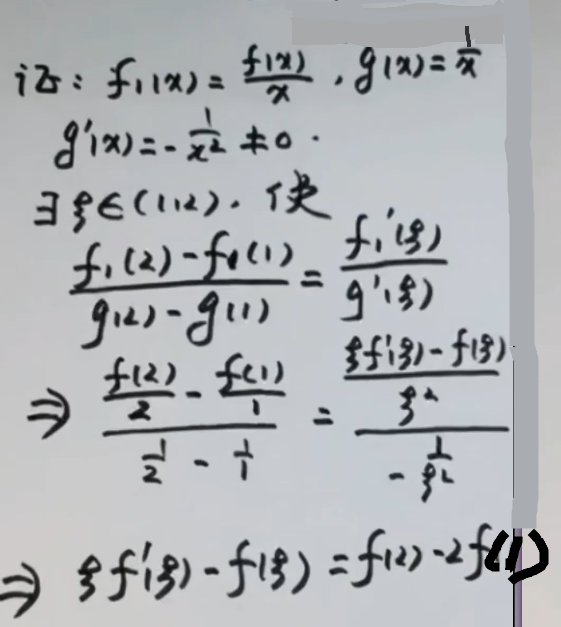 证: f₁(x) = f(x)/x , g(x) = 1/x
g'(x) = - 1/x² ≠ 0 .
∃ ξ ∈ (1,2) . 使
(f₁(2) - f₁(1))/(g(2) - g(1)) = f₁'(ξ)/g'(ξ)
⇒ (f(2)/2 - f(1)/1)/(1/2 - 1/1) = ((ξf'(ξ) - f(ξ))/ξ²)/(- 1/ξ²)
⇒ ξf'(ξ) - f(ξ) = f(2) - 2f(1)